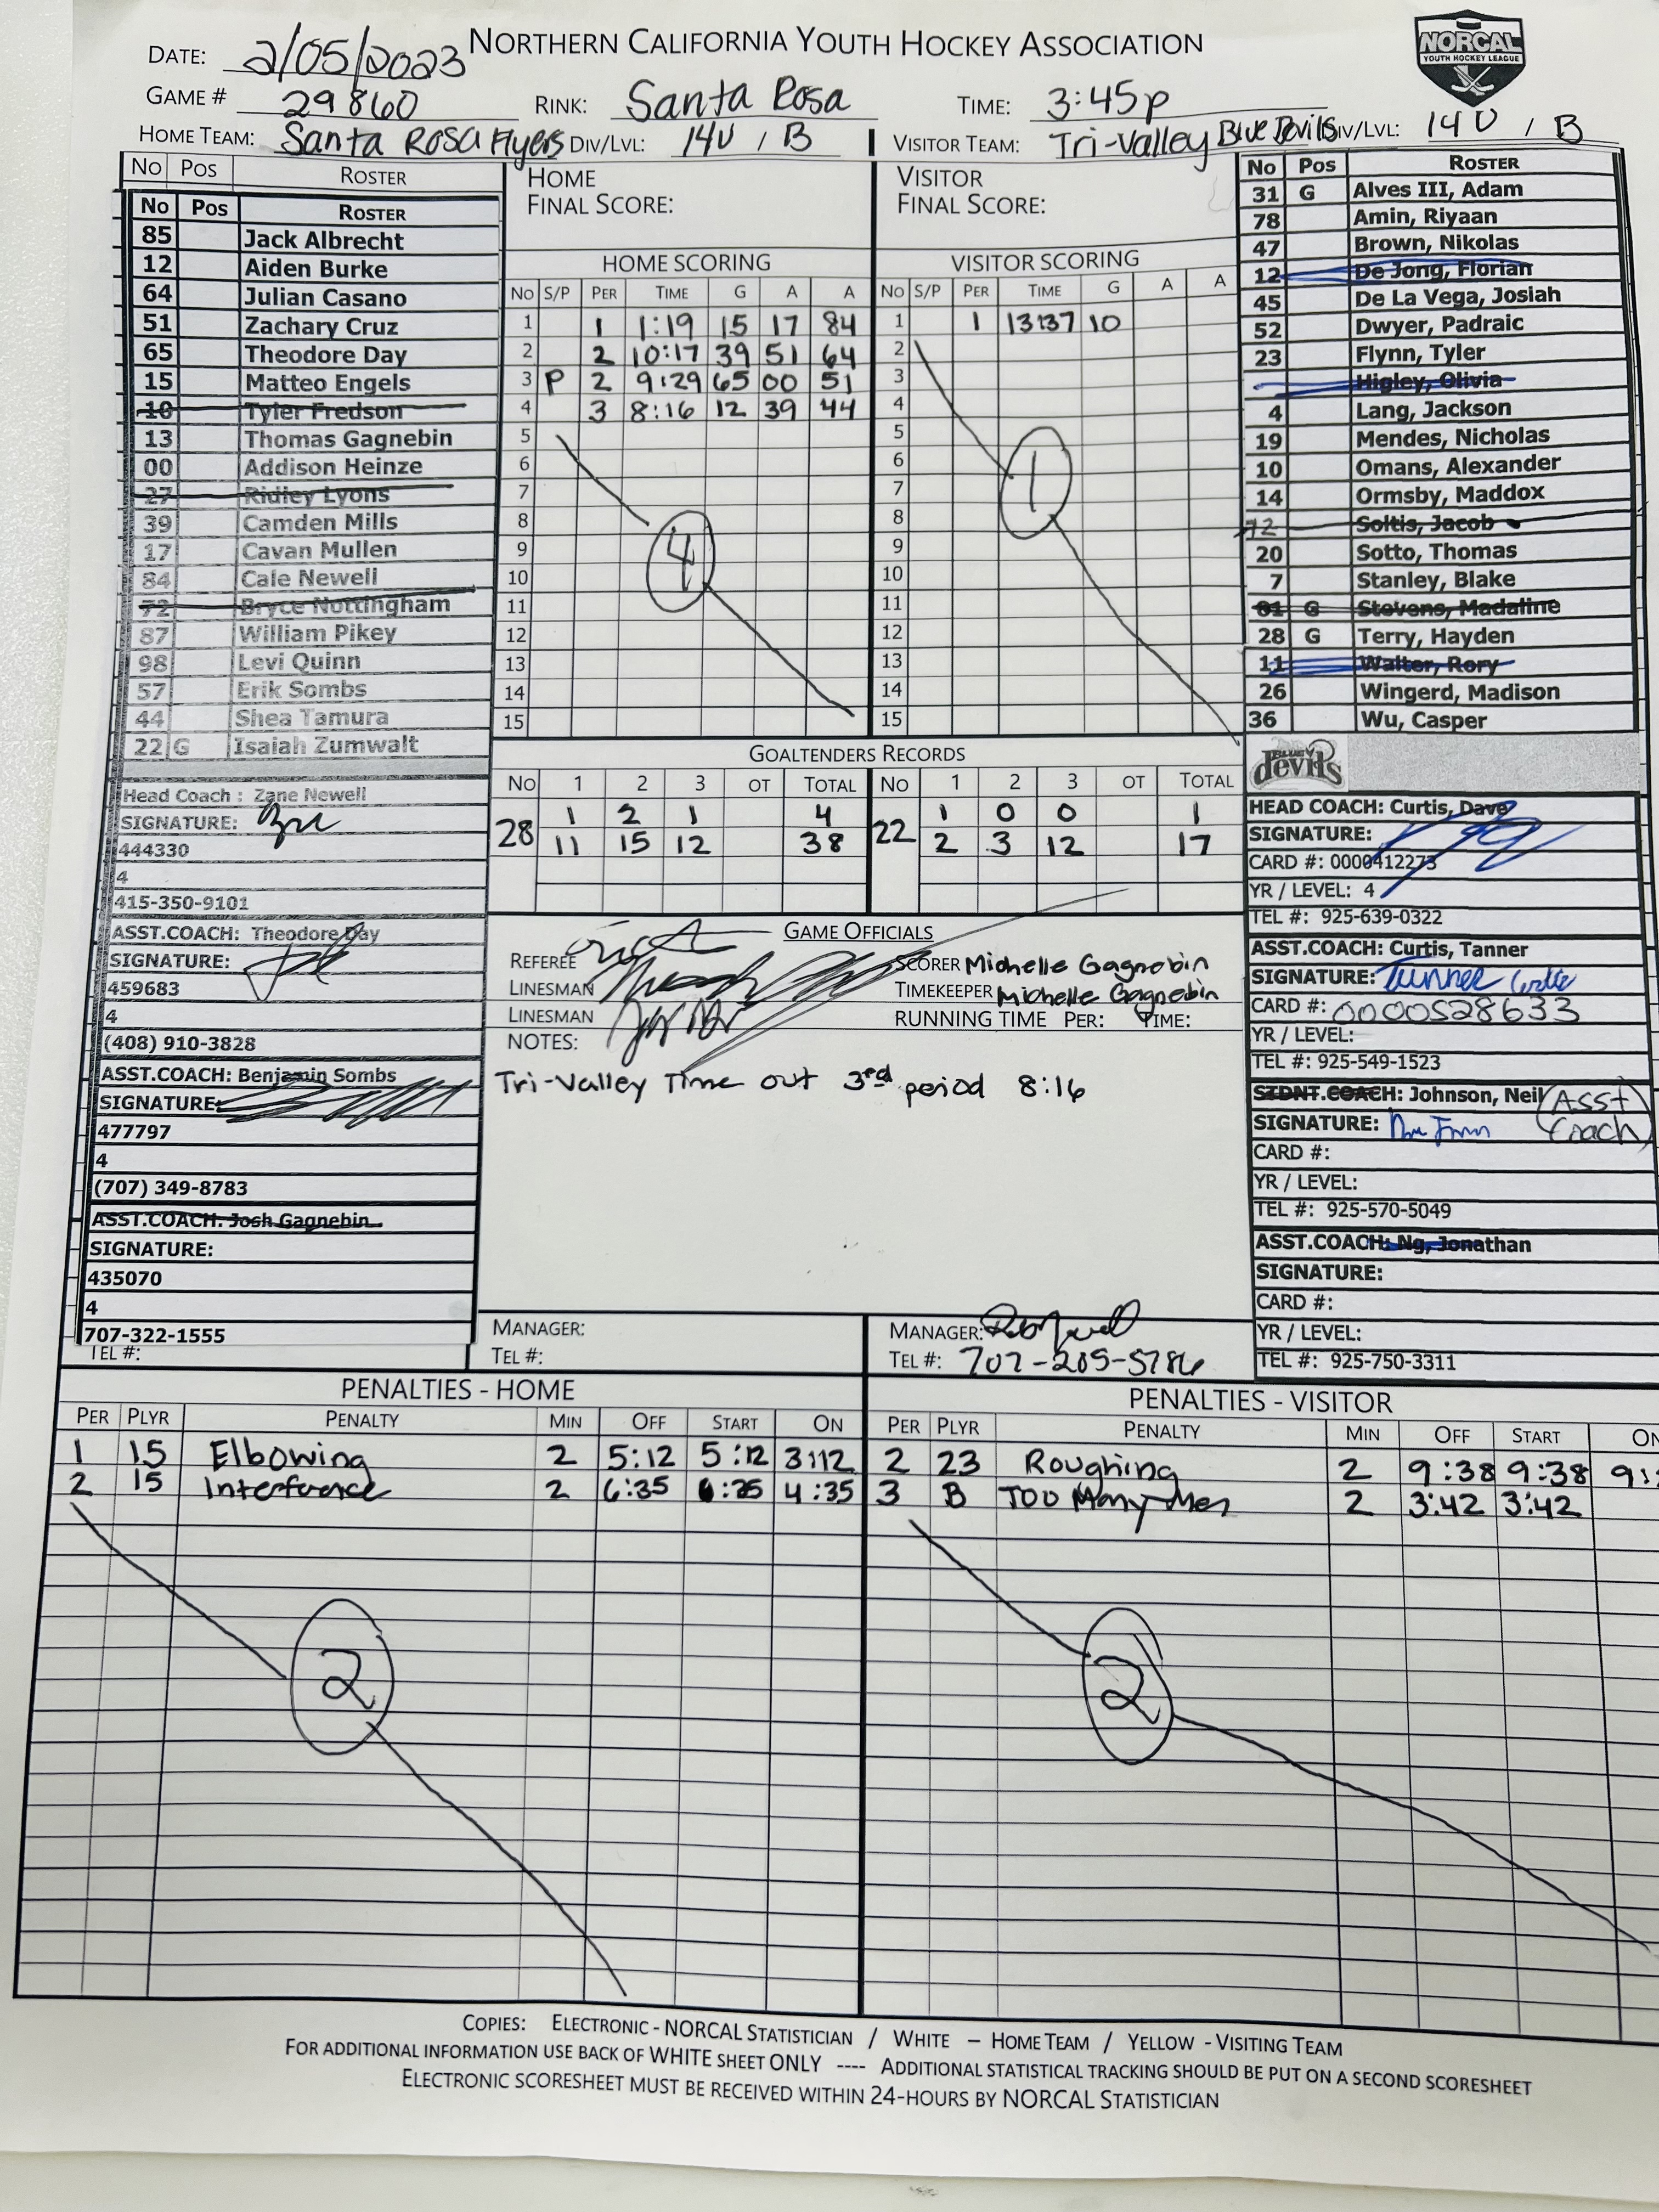 NORTHERN CALIFORNIA YOUTH HOCKEY ASSOCIATION
NORCAL
YOUTH HOCKEY LEAGUE
DATE: 2/05/2023
GAME # 29860 RINK: Santa Rosa TIME: 3:45p
HOME TEAM: Santa Rosa Flyers DIV/LVL: 14U / B VISITOR TEAM: Tri-Valley Blue Devils DIV/LVL: 14U / B
No Pos ROSTER
No Pos ROSTER
85 Jack Albrecht
12 Aiden Burke
64 Julian Casano
51 Zachary Cruz
65 Theodore Day
15 Matteo Engels
10 Tyler Fredson
13 Thomas Gagnebin
00 Addison Heinze
27 Ridley Lyons
39 Camden Mills
17 Cavan Mullen
84 Cale Newell
72 Bryce Nottingham
87 William Pikey
98 Levi Quinn
57 Erik Sombs
44 Shea Tamura
22 G Isaiah Zumwalt
Head Coach : Zane Newell
SIGNATURE:
444330
4
415-350-9101
ASST.COACH: Theodore Day
SIGNATURE:
459683
4
(408) 910-3828
ASST.COACH: Benjamin Sombs
SIGNATURE:
477797
4
(707) 349-8783
ASST.COACH: Josh Gagnebin
SIGNATURE:
435070
4
707-322-1555
TEL #:
HOME
FINAL SCORE:
HOME SCORING
No S/P PER TIME G A A
1 1 1:19 15 17 84
2 2 10:17 39 51 64
3 P 2 9:29 65 00 51
4 3 8:16 12 39 44
5
6
7
8
9
10
11
12
13
14
15
4
VISITOR
FINAL SCORE:
VISITOR SCORING
No S/P PER TIME G A A
1 1 13:37 10
2
3
4
5
6
7
8
9
10
11
12
13
14
15
1
GOALTENDERS RECORDS
No 1 2 3 OT TOTAL No 1 2 3 OT TOTAL
28 1 2 1 4 22 1 0 0 1
11 15 12 38 2 3 12 17
GAME OFFICIALS
REFEREE
LINESMAN
LINESMAN
SCORER Michelle Gagnebin
TIMEKEEPER Michelle Gagnebin
RUNNING TIME PER: TIME:
NOTES:
Tri-Valley Time out 3rd period 8:16
MANAGER:
TEL #:
MANAGER:
TEL #: 707-205-5786
No Pos ROSTER
31 G Alves III, Adam
78 Amin, Riyaan
47 Brown, Nikolas
12 De Jong, Florian
45 De La Vega, Josiah
52 Dwyer, Padraic
23 Flynn, Tyler
Higley, Olivia
4 Lang, Jackson
19 Mendes, Nicholas
10 Omans, Alexander
14 Ormsby, Maddox
72 Soltis, Jacob
20 Sotto, Thomas
7 Stanley, Blake
81 G Stevens, Madaline
28 G Terry, Hayden
11 Walter, Rory
26 Wingerd, Madison
36 Wu, Casper
BLUE devils
HEAD COACH: Curtis, Dave
SIGNATURE:
CARD #: 0000412273
YR / LEVEL: 4
TEL #: 925-639-0322
ASST.COACH: Curtis, Tanner
SIGNATURE: Tanner Curtis
CARD #: 0000528633
YR / LEVEL:
TEL #: 925-549-1523
STDNT.COACH: Johnson, Neil (Asst Coach)
SIGNATURE:
CARD #:
YR / LEVEL:
TEL #: 925-570-5049
ASST.COACH: Ng, Jonathan
SIGNATURE:
CARD #:
YR / LEVEL:
TEL #: 925-750-3311
PENALTIES - HOME
PER PLYR PENALTY MIN OFF START ON
1 15 Elbowing 2 5:12 5:12 3:12
2 15 Interference 2 6:35 6:35 4:35
2
PENALTIES - VISITOR
PER PLYR PENALTY MIN OFF START ON
2 23 Roughing 2 9:38 9:38 9:
3 B Too Many Men 2 3:42 3:42
2
COPIES: ELECTRONIC - NORCAL STATISTICIAN / WHITE – HOME TEAM / YELLOW - VISITING TEAM
FOR ADDITIONAL INFORMATION USE BACK OF WHITE SHEET ONLY ---- ADDITIONAL STATISTICAL TRACKING SHOULD BE PUT ON A SECOND SCORESHEET
ELECTRONIC SCORESHEET MUST BE RECEIVED WITHIN 24-HOURS BY NORCAL STATISTICIAN